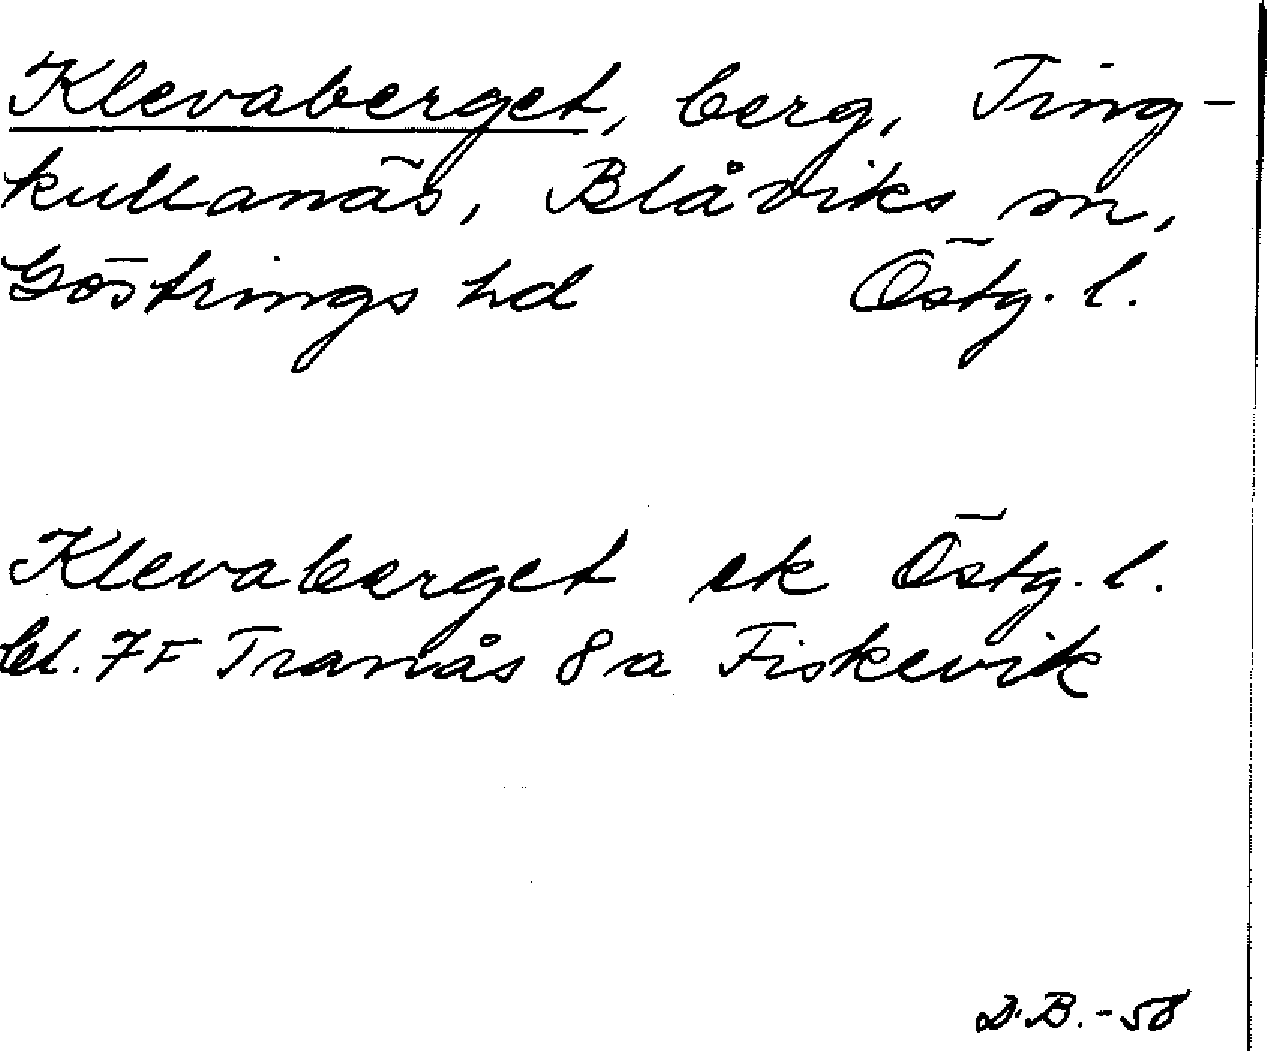 Klevaberget, berg, Ting-
kullanäs, Blåviks sn,
Göstrings hd Östg. l.
Klevaberget ek Östg. l.
bl. 7F Tranås 8a Fiskevik
D.B. -58